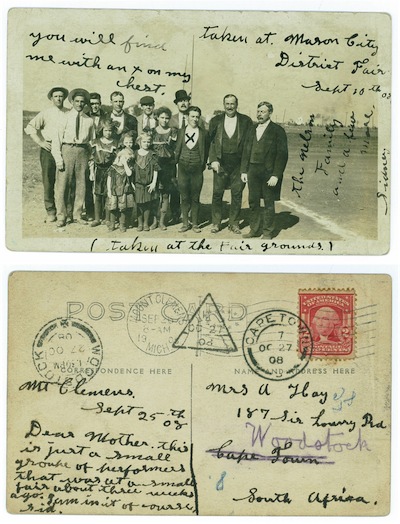 you will find
me with an x on my
chest.
taken at. Mason City
District Fair
Sept 10th 08
the nelson
Family
and a few
more.
Sidney
x
( taken at the Fair grounds. )
POST CARD
CORRESPONDENCE HERE
NAME AND ADDRESS HERE
MOUNT CLEMENS
SEP
8-AM
19
MICH.
OC 27
CAPE TOWN
7
OC 27
08
WOODSTOCK
OC 27
08
UNITED STATES OF AMERICA
2
Mt Clemens.
Sept 25th
08
Dear Mother. this
is just a small
groupe of performers
that was at a small
fair about three weeks
ago. I am in it of course
Sid.
Mrs A Hay
187 Sir Lowry Rd
Woodstock
Cape Town
8
South Africa.